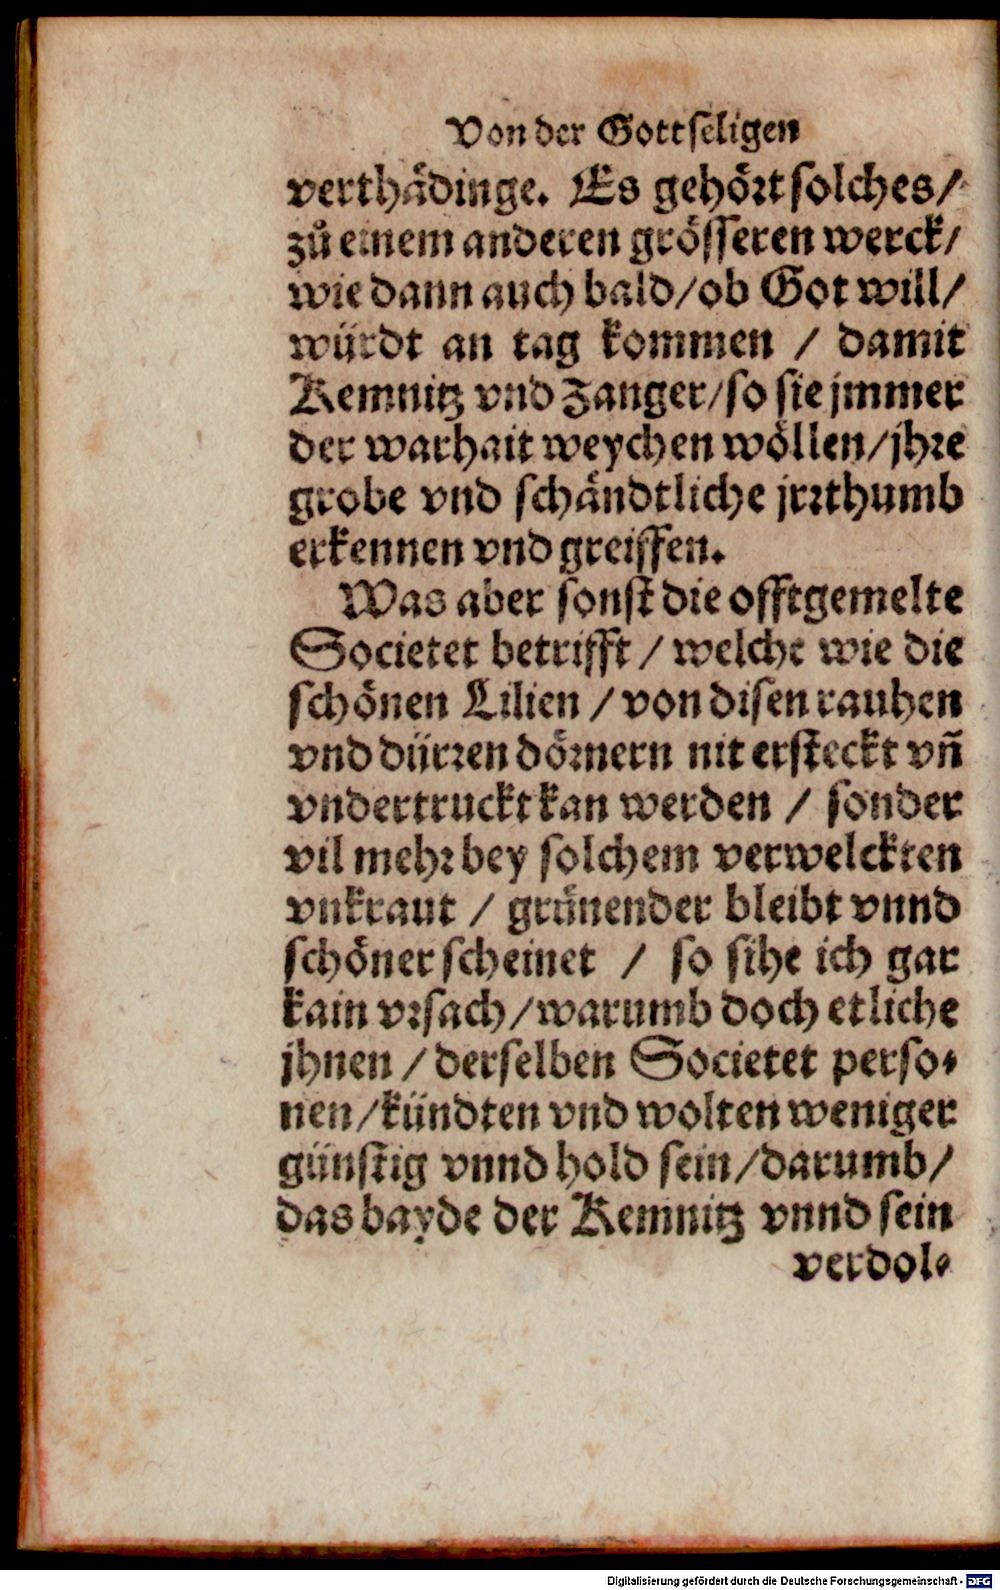 Von der Gottseligen
verthädinge. Es gehört solches/
zů einem anderen grösseren werck/
wie dann auch bald/ob Got will/
würdt an tag kommen / damit
Kemnitz vnd Zanger/so sie jmmer
der warhait weychen wöllen/jhre
grobe vnd schändtliche jrrthumb
erkennen vnd greiffen.
Was aber sonst die offtgemelte
Societet betrifft / welche wie die
schönen Lilien / von disen rauhen
vnd dürren dörnern nit ersteckt vñ
vndertruckt kan werden / sonder
vil mehr bey solchem verwelckten
vnkraut / grünender bleibt vnnd
schöner scheinet / so sihe ich gar
kain vrsach/warumb doch etliche
jhnen / derselben Societet perso⸗
nen/kündten vnd wolten weniger
günstig vnnd hold sein/darumb/
das bayde der Kemnitz vnnd sein
verdol⸗
Digitalisierung gefördert durch die Deutsche Forschungsgemeinschaft - DFG